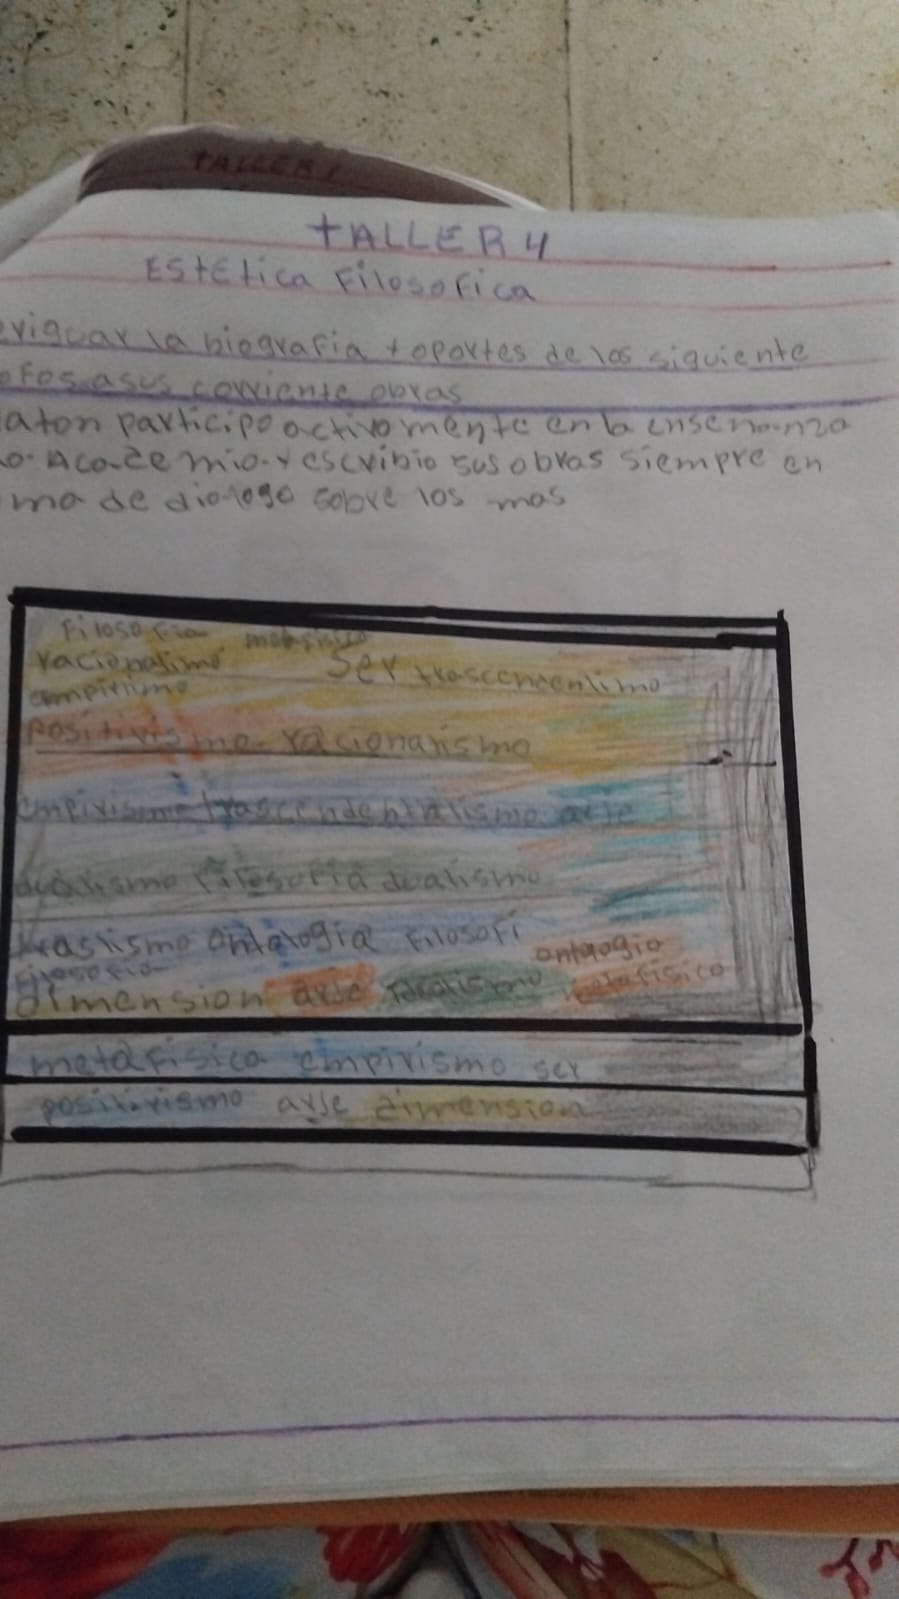 TALLER 1
TALLER 4
Estetica Filosofica
eriguar la biografia + oportes de los siguiente
ofos asus corriente obras
aton participo activomente en la enseñanza
o. Academio y escribio sus obras siempre en
ma de dialogo sobre los mas
Filosofia metafisica
racionalimo Ser trascendenlimo
empirimo
positivismo racionalismo
empirismo trascendentalismo arje
dualismo filosofia dualismo
ontologia Filosofi
ontologio
filosofia
dimension arje metafisico
metafisica empirismo ser
positivismo arje dimension